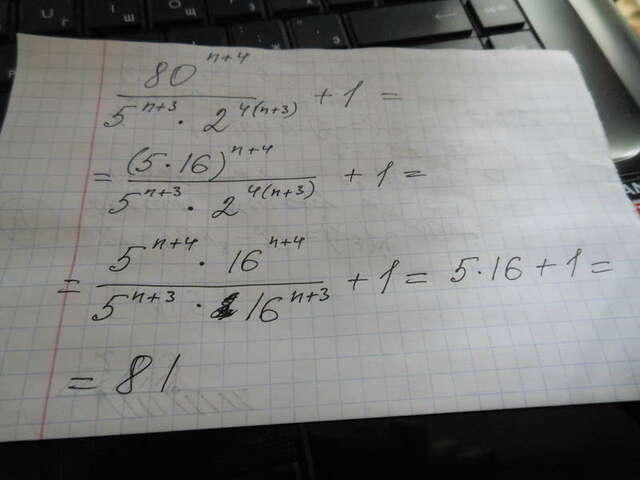 80^{n+4} / (5^{n+3} · 2^{4(n+3)}) + 1 =
= (5·16)^{n+4} / (5^{n+3} · 2^{4(n+3)}) + 1 =
= 5^{n+4} · 16^{n+4} / (5^{n+3} · 16^{n+3}) + 1 = 5·16+1 =
= 81